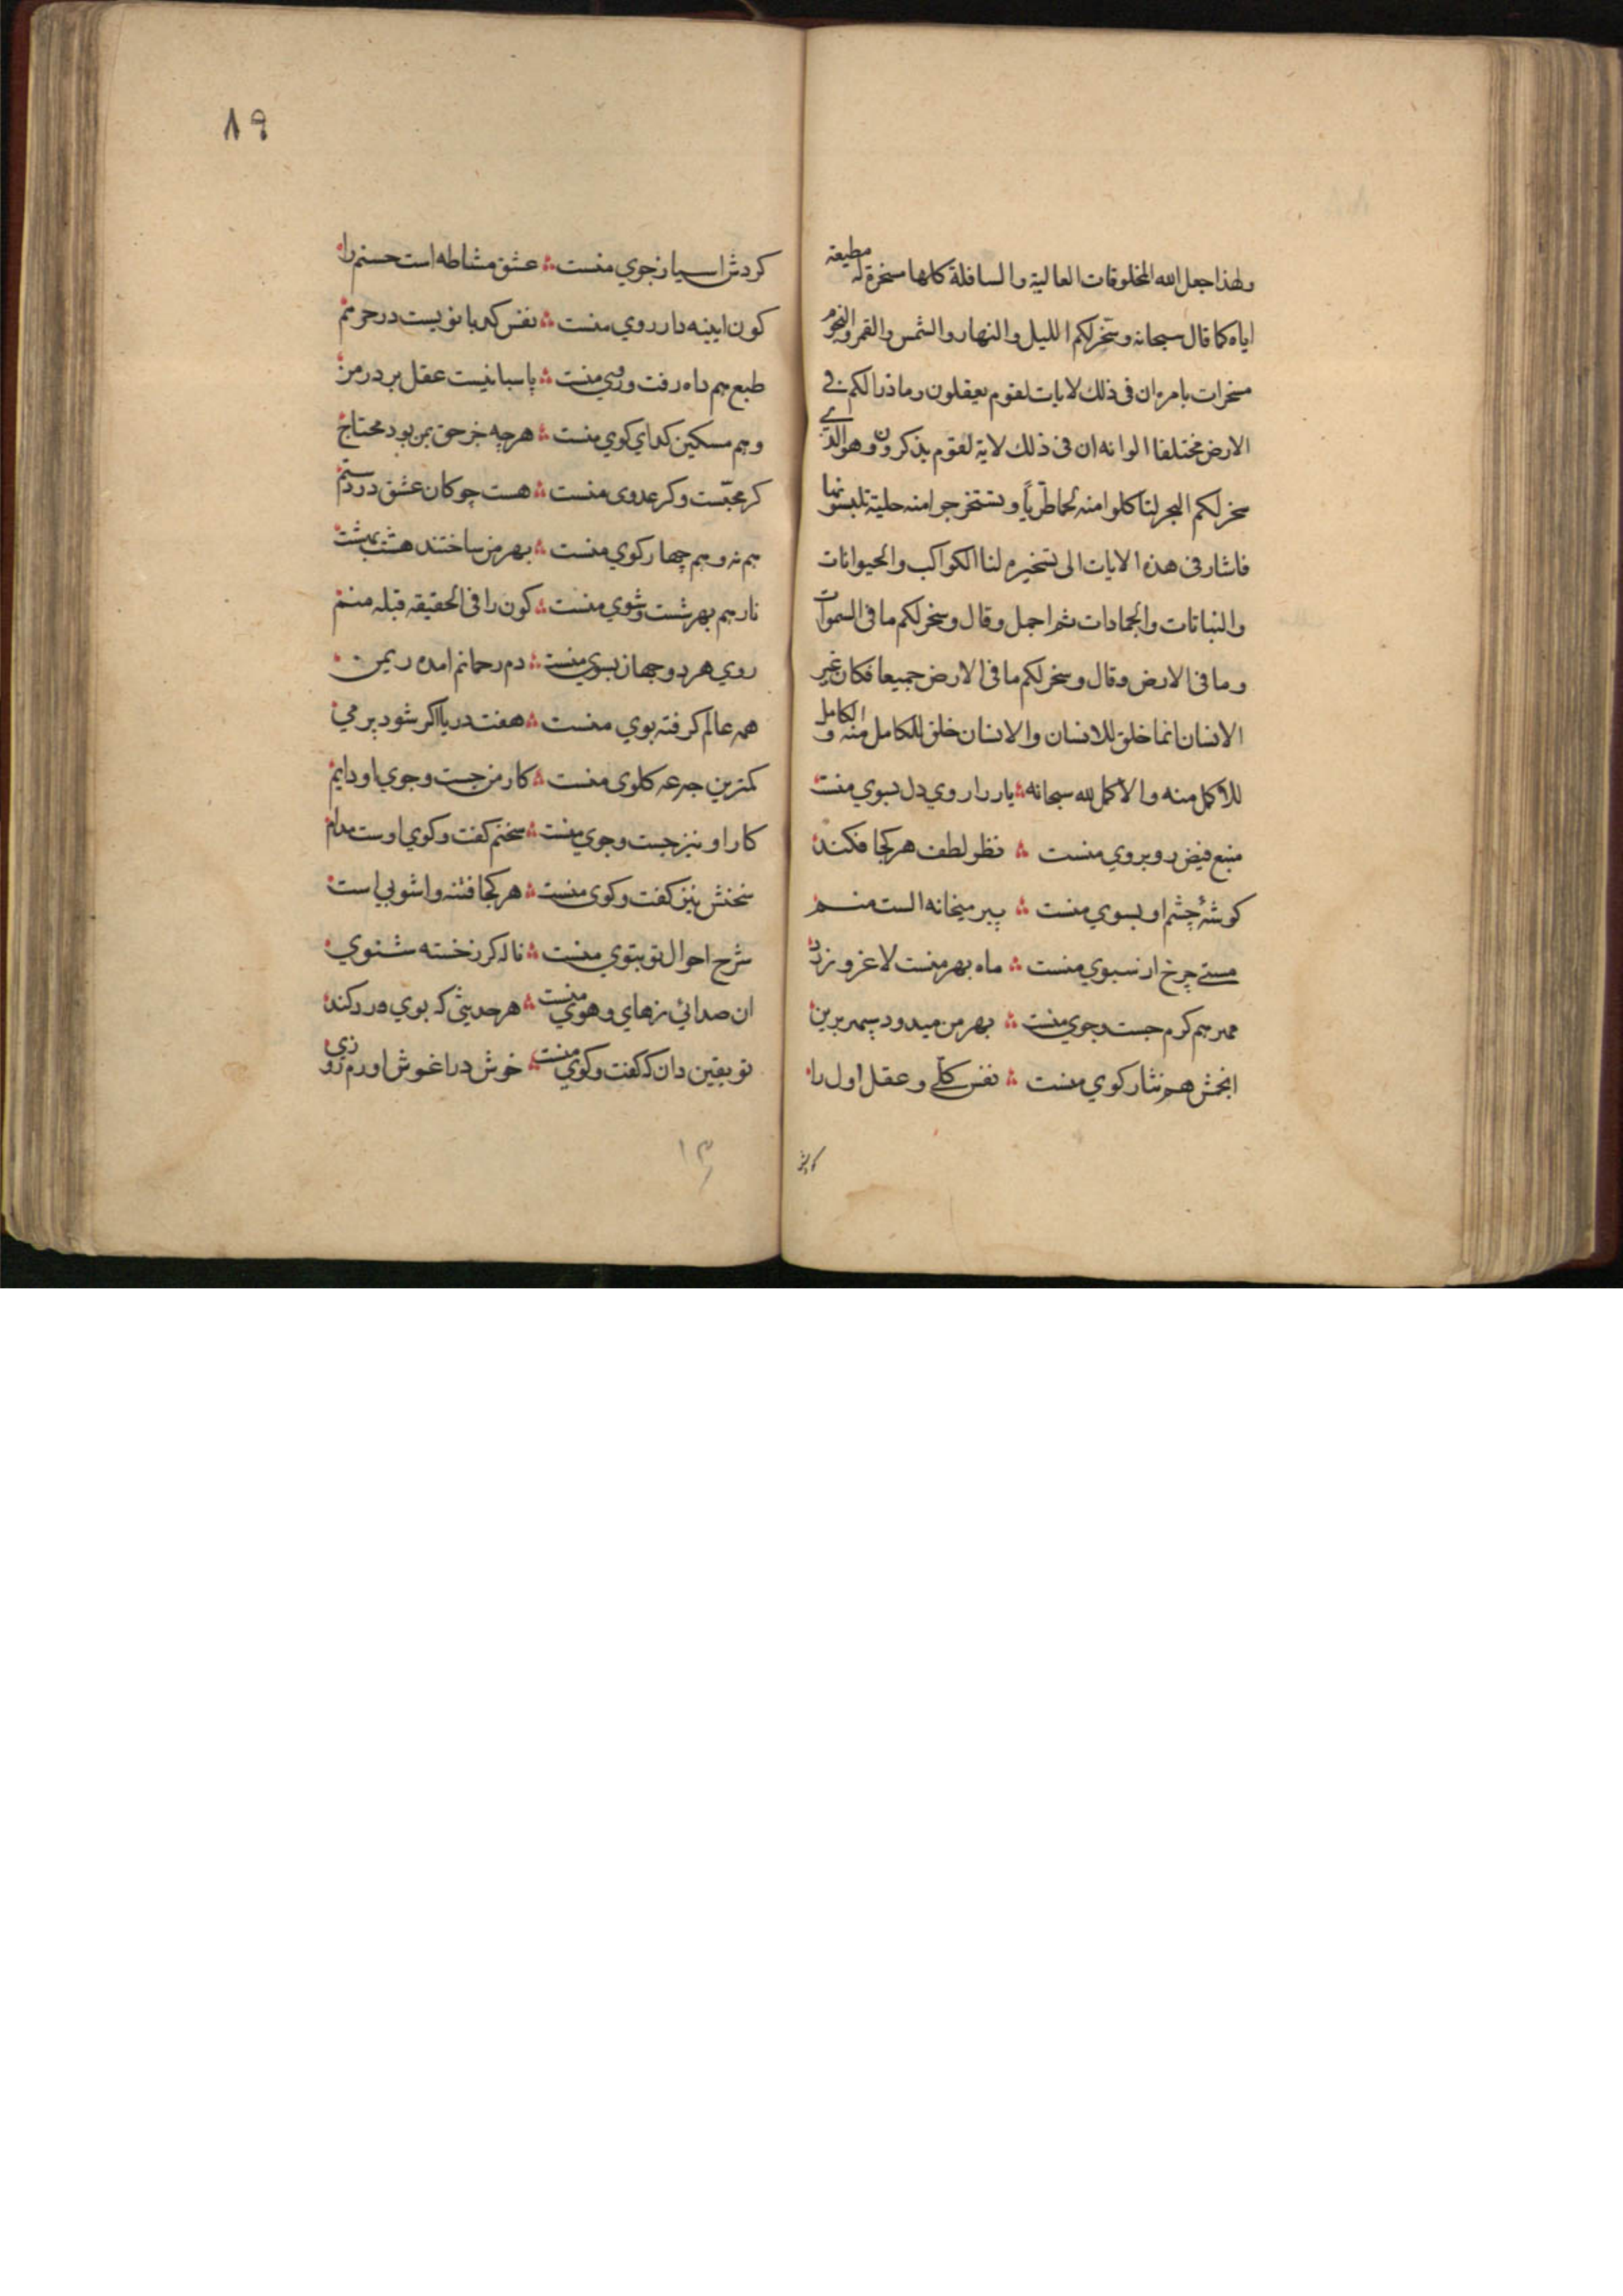 ولهذا جعل الله المخلوقات العالية والسافلة كلها سخرة له مطيعة
اياه كما قال سبحانه وسخر لكم الليل والنهار والشمس والقمر والنجوم
مسخرات بامره ان في ذلك لايات لقوم يعقلون وما ذرا لكم في
الارض مختلفا الوانه ان في ذلك لاية لقوم يذكرون وهو الذي
سخر لكم البحر لتاكلوا منه لحما طريًا وتستخرجوا منه حلية تلبسونها
فاشار في هذه الايات الى تسخيره لنا الكواكب والحيوانات
والنباتات والجمادات ثم اجمل وقال وسخر لكم ما في السموات
وما في الارض وقال وسخر لكم ما في الارض جميعا فكان غير
الانسان انما خلق للانسان والانسان خلق للكامل منه والكامل
للاكمل منه والاكمل لله سبحانه ∴ يار را روي دل بسوي منست
منبع فيض روبروي منست ∴ نظر لطف هر كجا فكند
كوشۀ چشم او بسوي منست ∴ پير ميخانه الست منم
مستي چرخ از سبوي منست ∴ ماه بهر منست لاغر و زرد
مهر هم كرم جست وجوي منست ∴ بهر من ميدود سپهر برين
انجمش هم نثار كوي منست ∴ نفس كلي و عقل اول را
كردش
٨٩
كردش اسيا ز جوي منست ∴ عشق مشاطه است حسنم را
كون ايينه دار روي منست ∴ نفس كدبانويست در حرمم
طبع هم داه رفت وروي منست ∴ پاسبانيست عقل بر در من
وهم مسكين كداي كوي منست ∴ هرچه جز حق بمن بود محتاج
كر محبّست وكر عدوي منست ∴ هست چوكان عشق در دستم
هم نه وهم چهار كوي منست ∴ بهر من ساختند هشت بهشت
نار هم بهر شست وشوي منست ∴ كون را في الحقيقه قبله منم
روي هر دو جهان بسوي منست ∴ دم رحمانم امده ز يمن
همه عالم كرفته بوي منست ∴ هفت دريا اكر شود پر مي
كمترين جرعه كلوي منست ∴ كار من جست وجوي او دايم
كار او نيز جست وجوي منست ∴ سخنم كفت وكوي اوست مدام
سخنش نيز كفت وكوي منست ∴ هر كجا فتنه واشوبي است
شرح احوال تو بتوي منست ∴ ناله كز خسته شنوي
ان صدائي ز هاي وهوي منست ∴ هر حديثي كه بوي درد كند
تو يقين دان كه كفت وكوي منست ∴ خوش در اغوش اورم روزي
١٣